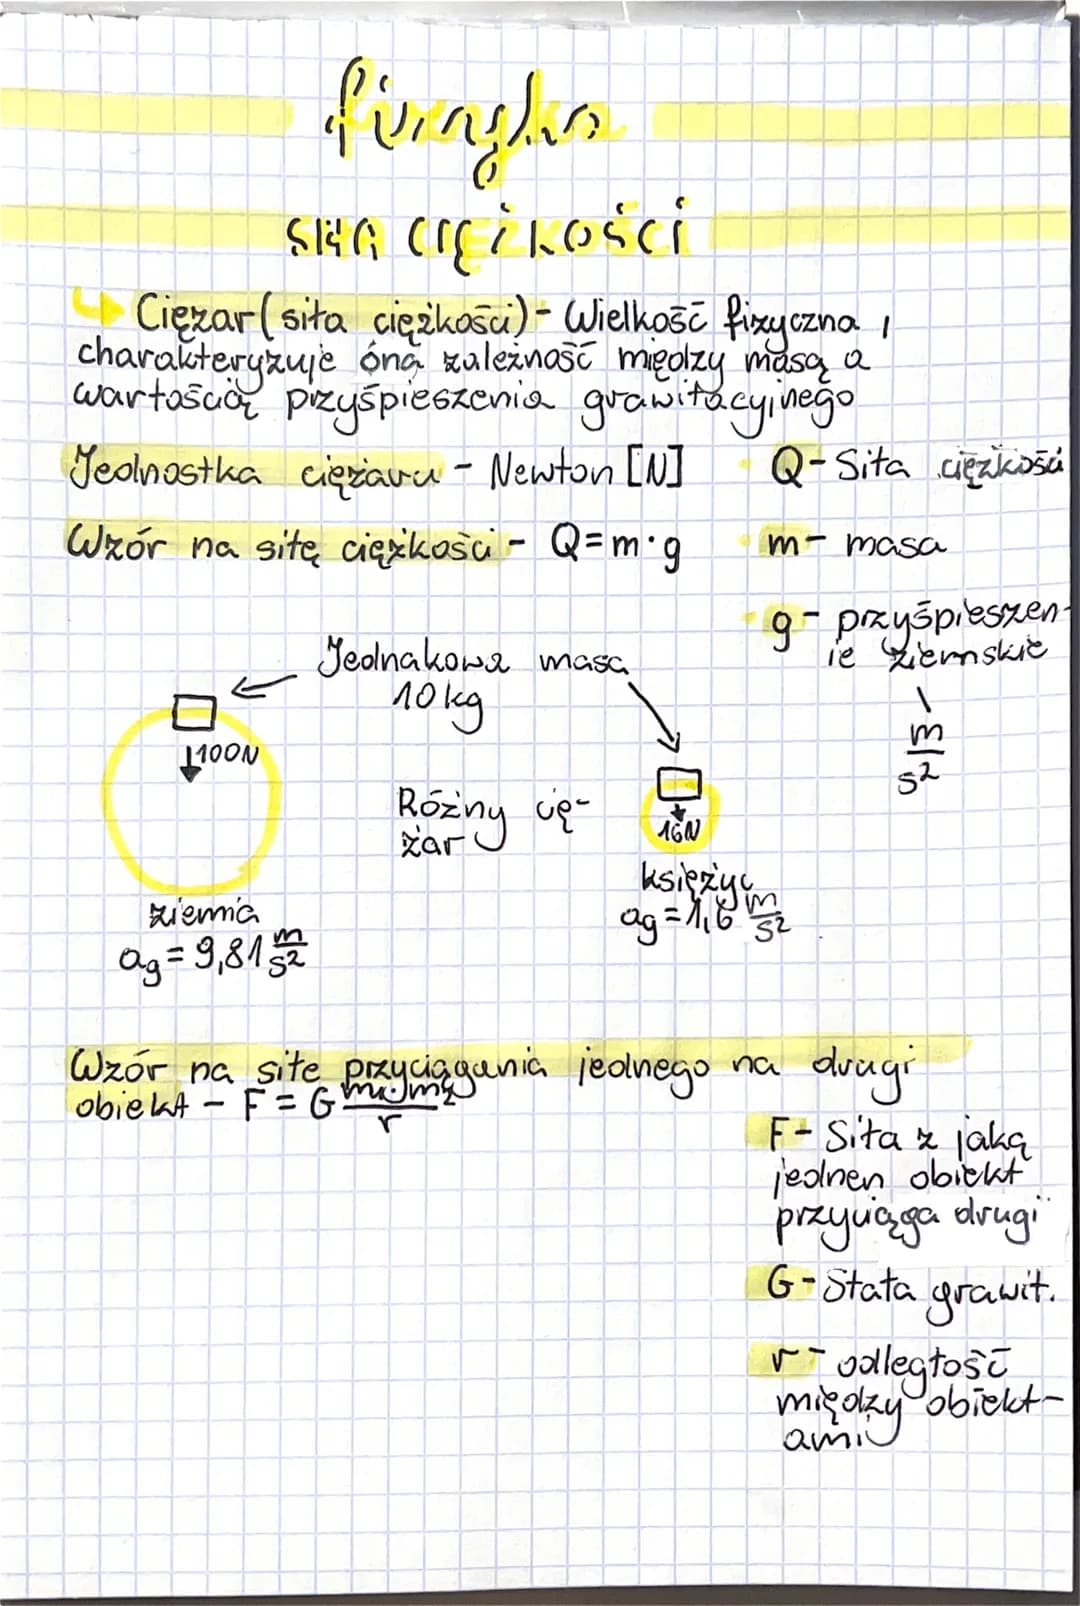 fizyka
SIŁA CIĘŻKOŚCI
Ciężar (siła ciężkości) - Wielkość fizyczna,
charakteryzuje óna zależność między masą a
wartością przyśpieszenia grawitacyjnego
Jednostka ciężaru - Newton [N]
Q - Siła ciężkości
Wzór na siłę ciężkości - Q=m·g
m - masa
g - przyśpieszen-
ie ziemskie
m/s²
Jednakowa masa
10 kg
100N
Różny cię-
żar
16N
ziemia
ag = 9,81 m/s²
księżyc
ag = 1,6 m/s²
Wzór na siłe przyciągania jednego na drugi
obiekt - F = G m₁·m₂/r
F - Siła z jaką
jednen obiekt
przyciąga drugi
G - Stała grawit.
r - odległość
między obiekt-
ami